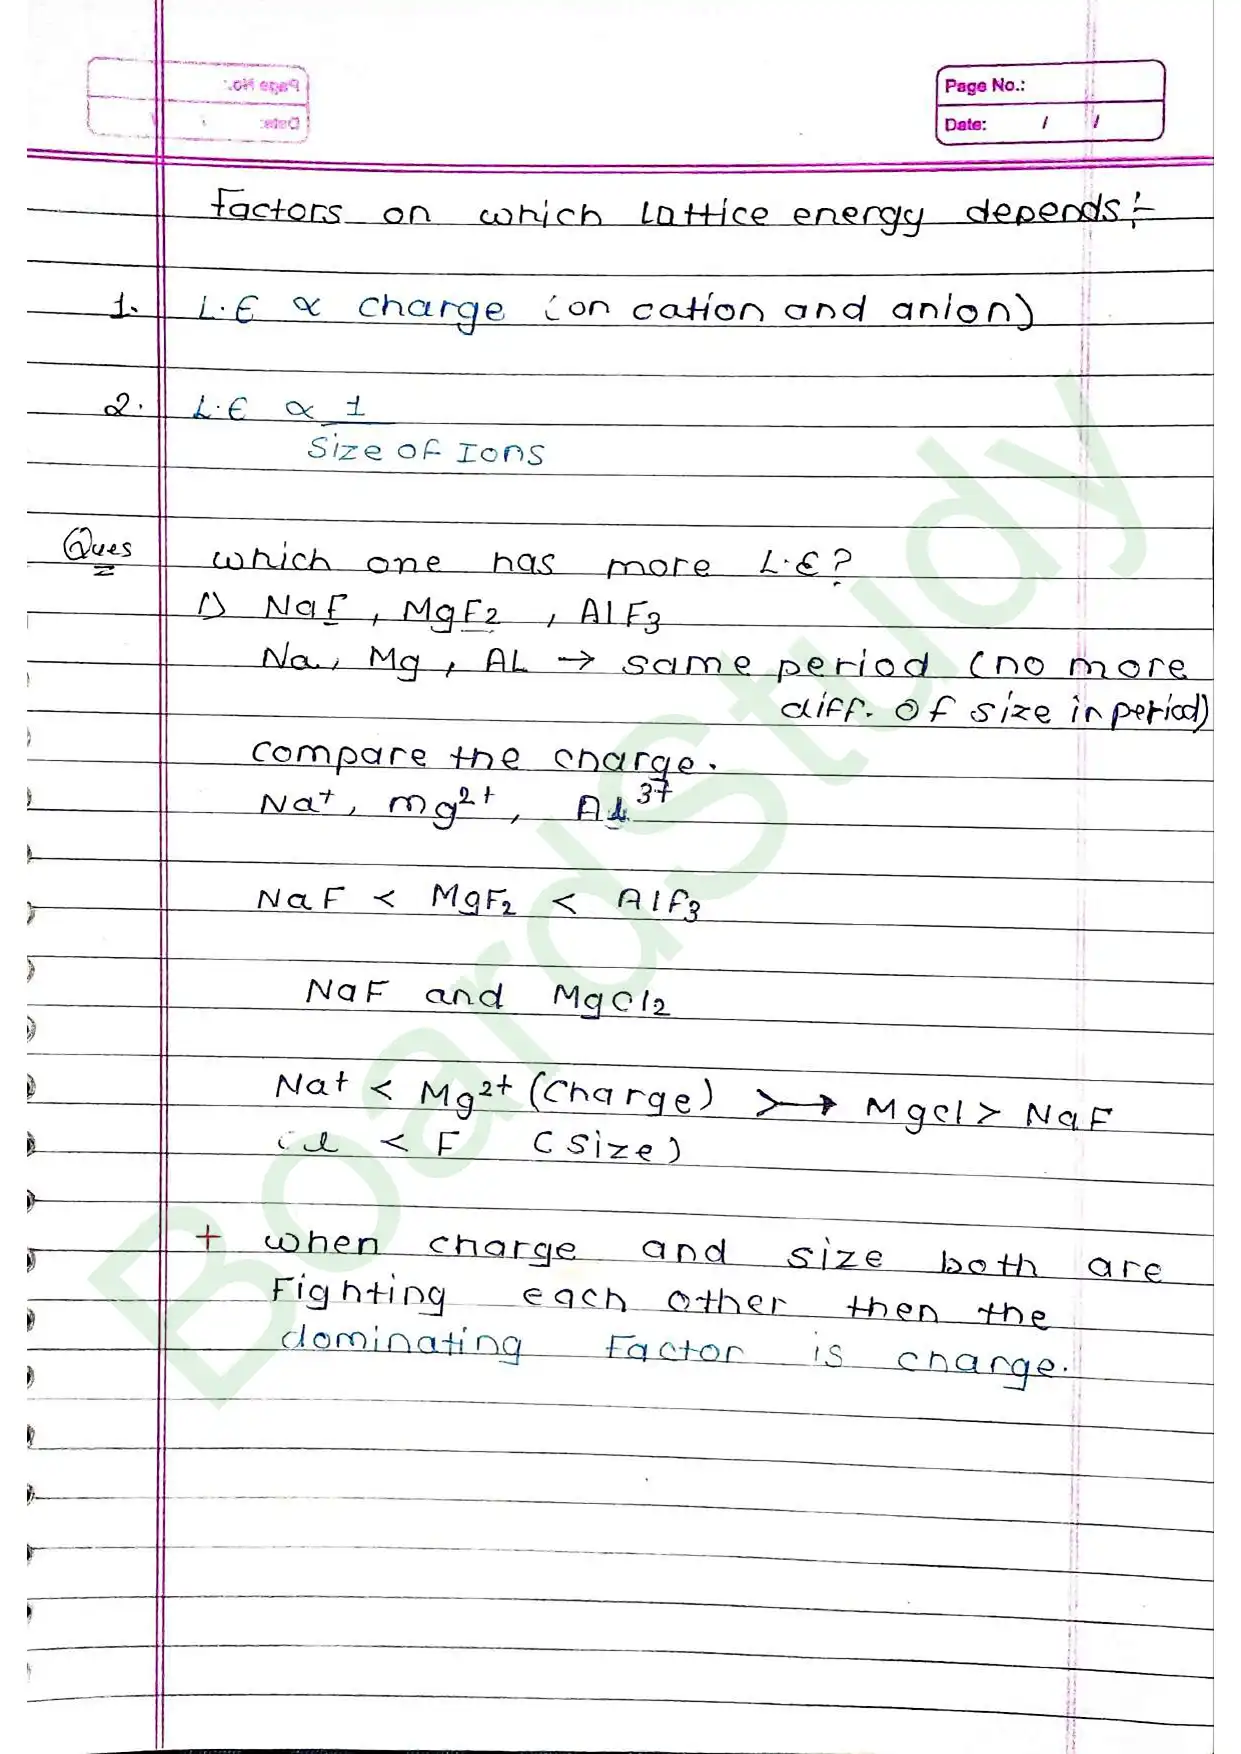 Page No.:
Date: / /
Factors on which Lattice energy depends:-
1. L.E ∝ charge (on cation and anion)
2. L.E ∝ 1
Size of Ions
Ques which one has more L.E?
1) NaF, MgF2, AlF3
Na, Mg, AL → same period (no more
diff. of size in period)
compare the charge.
Na+, mg2+, Al3+
NaF < MgF2 < AlF3
NaF and MgCl2
Na+ < Mg2+ (Charge) >→ MgCl > NaF
cl < F (Size)
+ when charge and size both are
Fighting each other then the
dominating Factor is charge.
BoardStudy